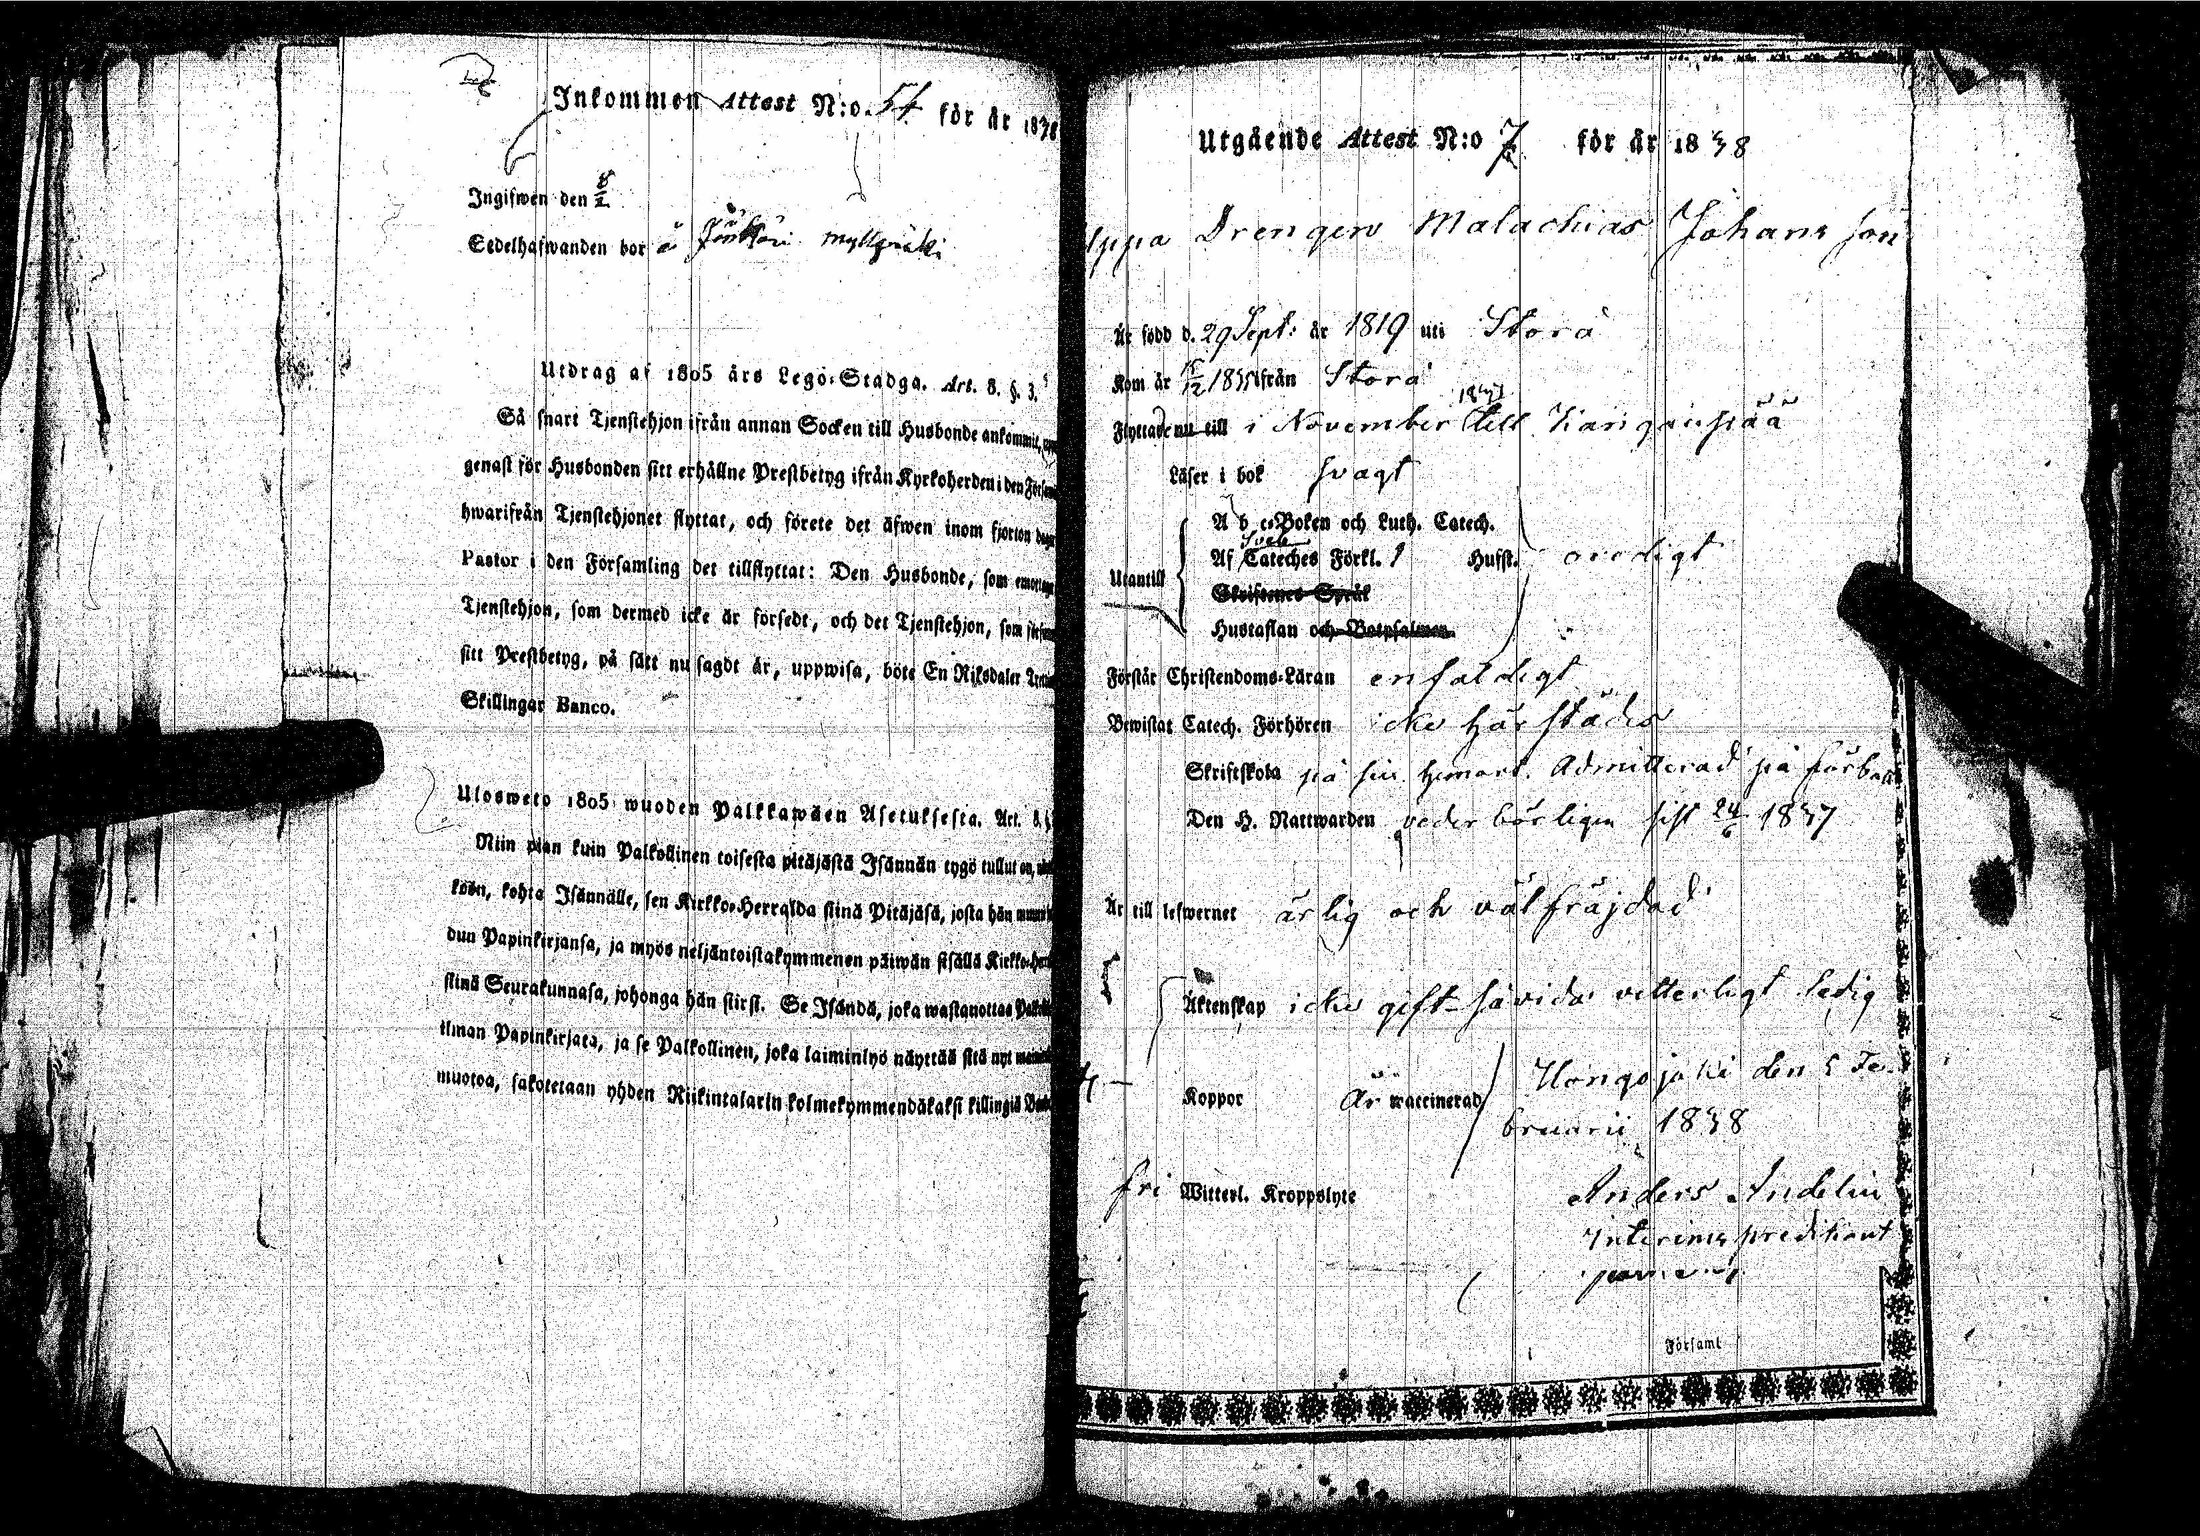 Inkommen Attest N:o. 54 för år 1838
Ingifwen den 8/2
Sedelhafwanden bor å
Utdrag af 1805 års Lego-Stadga. Art. 8. §. 3.
Så snart Tjenstehjon ifrån annan Socken till Husbonde ankommit,
genast för Husbonden sitt erhållne Prestbetyg ifrån Kyrkoherden i den
hwarifrån Tjenstehjonet flyttat, och förete det äfwen inom fjorton dagar
Pastor i den Församling det tillflyttat: Den Husbonde, som
Tjenstehjon, som dermed icke är försedt, och det Tjenstehjon, som
sitt Prestbetyg, på sätt nu sagdt är, uppwisa, böte En Riksdaler
Skillingar Banco.
Ulosweto 1805 wuoden Palkkawäen Asetuksesta. Art. 8. §
Niin pian kuin Palkollinen toisesta pitäjästä Isännän tygö tullut on,
köön, kohta Isännälle, sen Kirkko-Herralda siinä Pitäjäsä, josta hän
dun Papinkirjansa, ja myös neljäntoistakymmenen päiwän sisällä
siinä Seurakunnasa, johonga hän siirsi. Se Isändä, joka wastanottaa
ilman Papinkirjata, ja se Palkollinen, joka laiminlyö näyttää sitä nyt
muotoa, sakotetaan yhden Riikintalarin kolmekymmendäkaksi killingiä
Utgående Attest N:o 7 för år 1838
Drengen Malachias Johansson
Är född d. 29 Sept: år 1819 uti Storå
Kom år ifrån Storå
Flyttade nu till i November till Kangaspää
Läser i bok svagt
A b c-Boken och Luth. Catech.
Sveb
Utantill Af Cateches Förkl. Husst. oredigt
Skriftenes Språk
Hustaflan och Botpsalmen
Förstår Christendoms-Läran enfaldigt
Bewistat Catech. Förhören icke härstädes
Skriftskola på sin hemort. Admitterad på
Den H. Nattwarden vederbörligen sist 24/6 1837
Är till lefwernet ärlig och välfräjdad
Äktenskap icke gift såvida vetterligt ledig
Koppor Är waccinerad Hongojoki den 5 Fe
bruarii 1838
fri Witterl. Kroppslyte Anders Andelin
Interims predikant
Församl